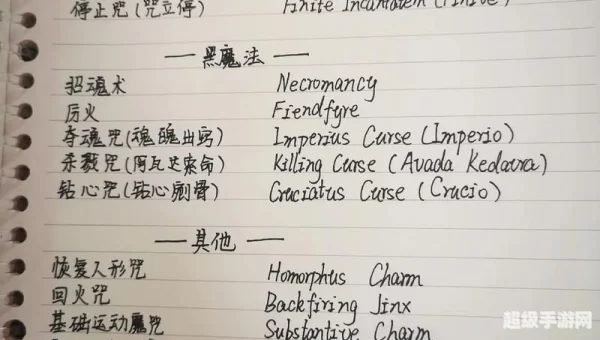 停止咒(咒立停) Finite Incantatem (Finite)
— 黑魔法 —
招魂术 Necromancy
厉火 Fiendfyre
夺魂咒(魂魄出窍) Imperius Curse (Imperio)
杀戮咒(阿瓦达索命) Killing Curse (Avada Kedavra)
钻心咒(钻心剜骨) Cruciatus Curse (Crucio)
— 其他 —
恢复人形咒 Homorphus Charm
回火咒 Backfiring Jinx
基础运动魔咒 Substantive Charm
超级手游网